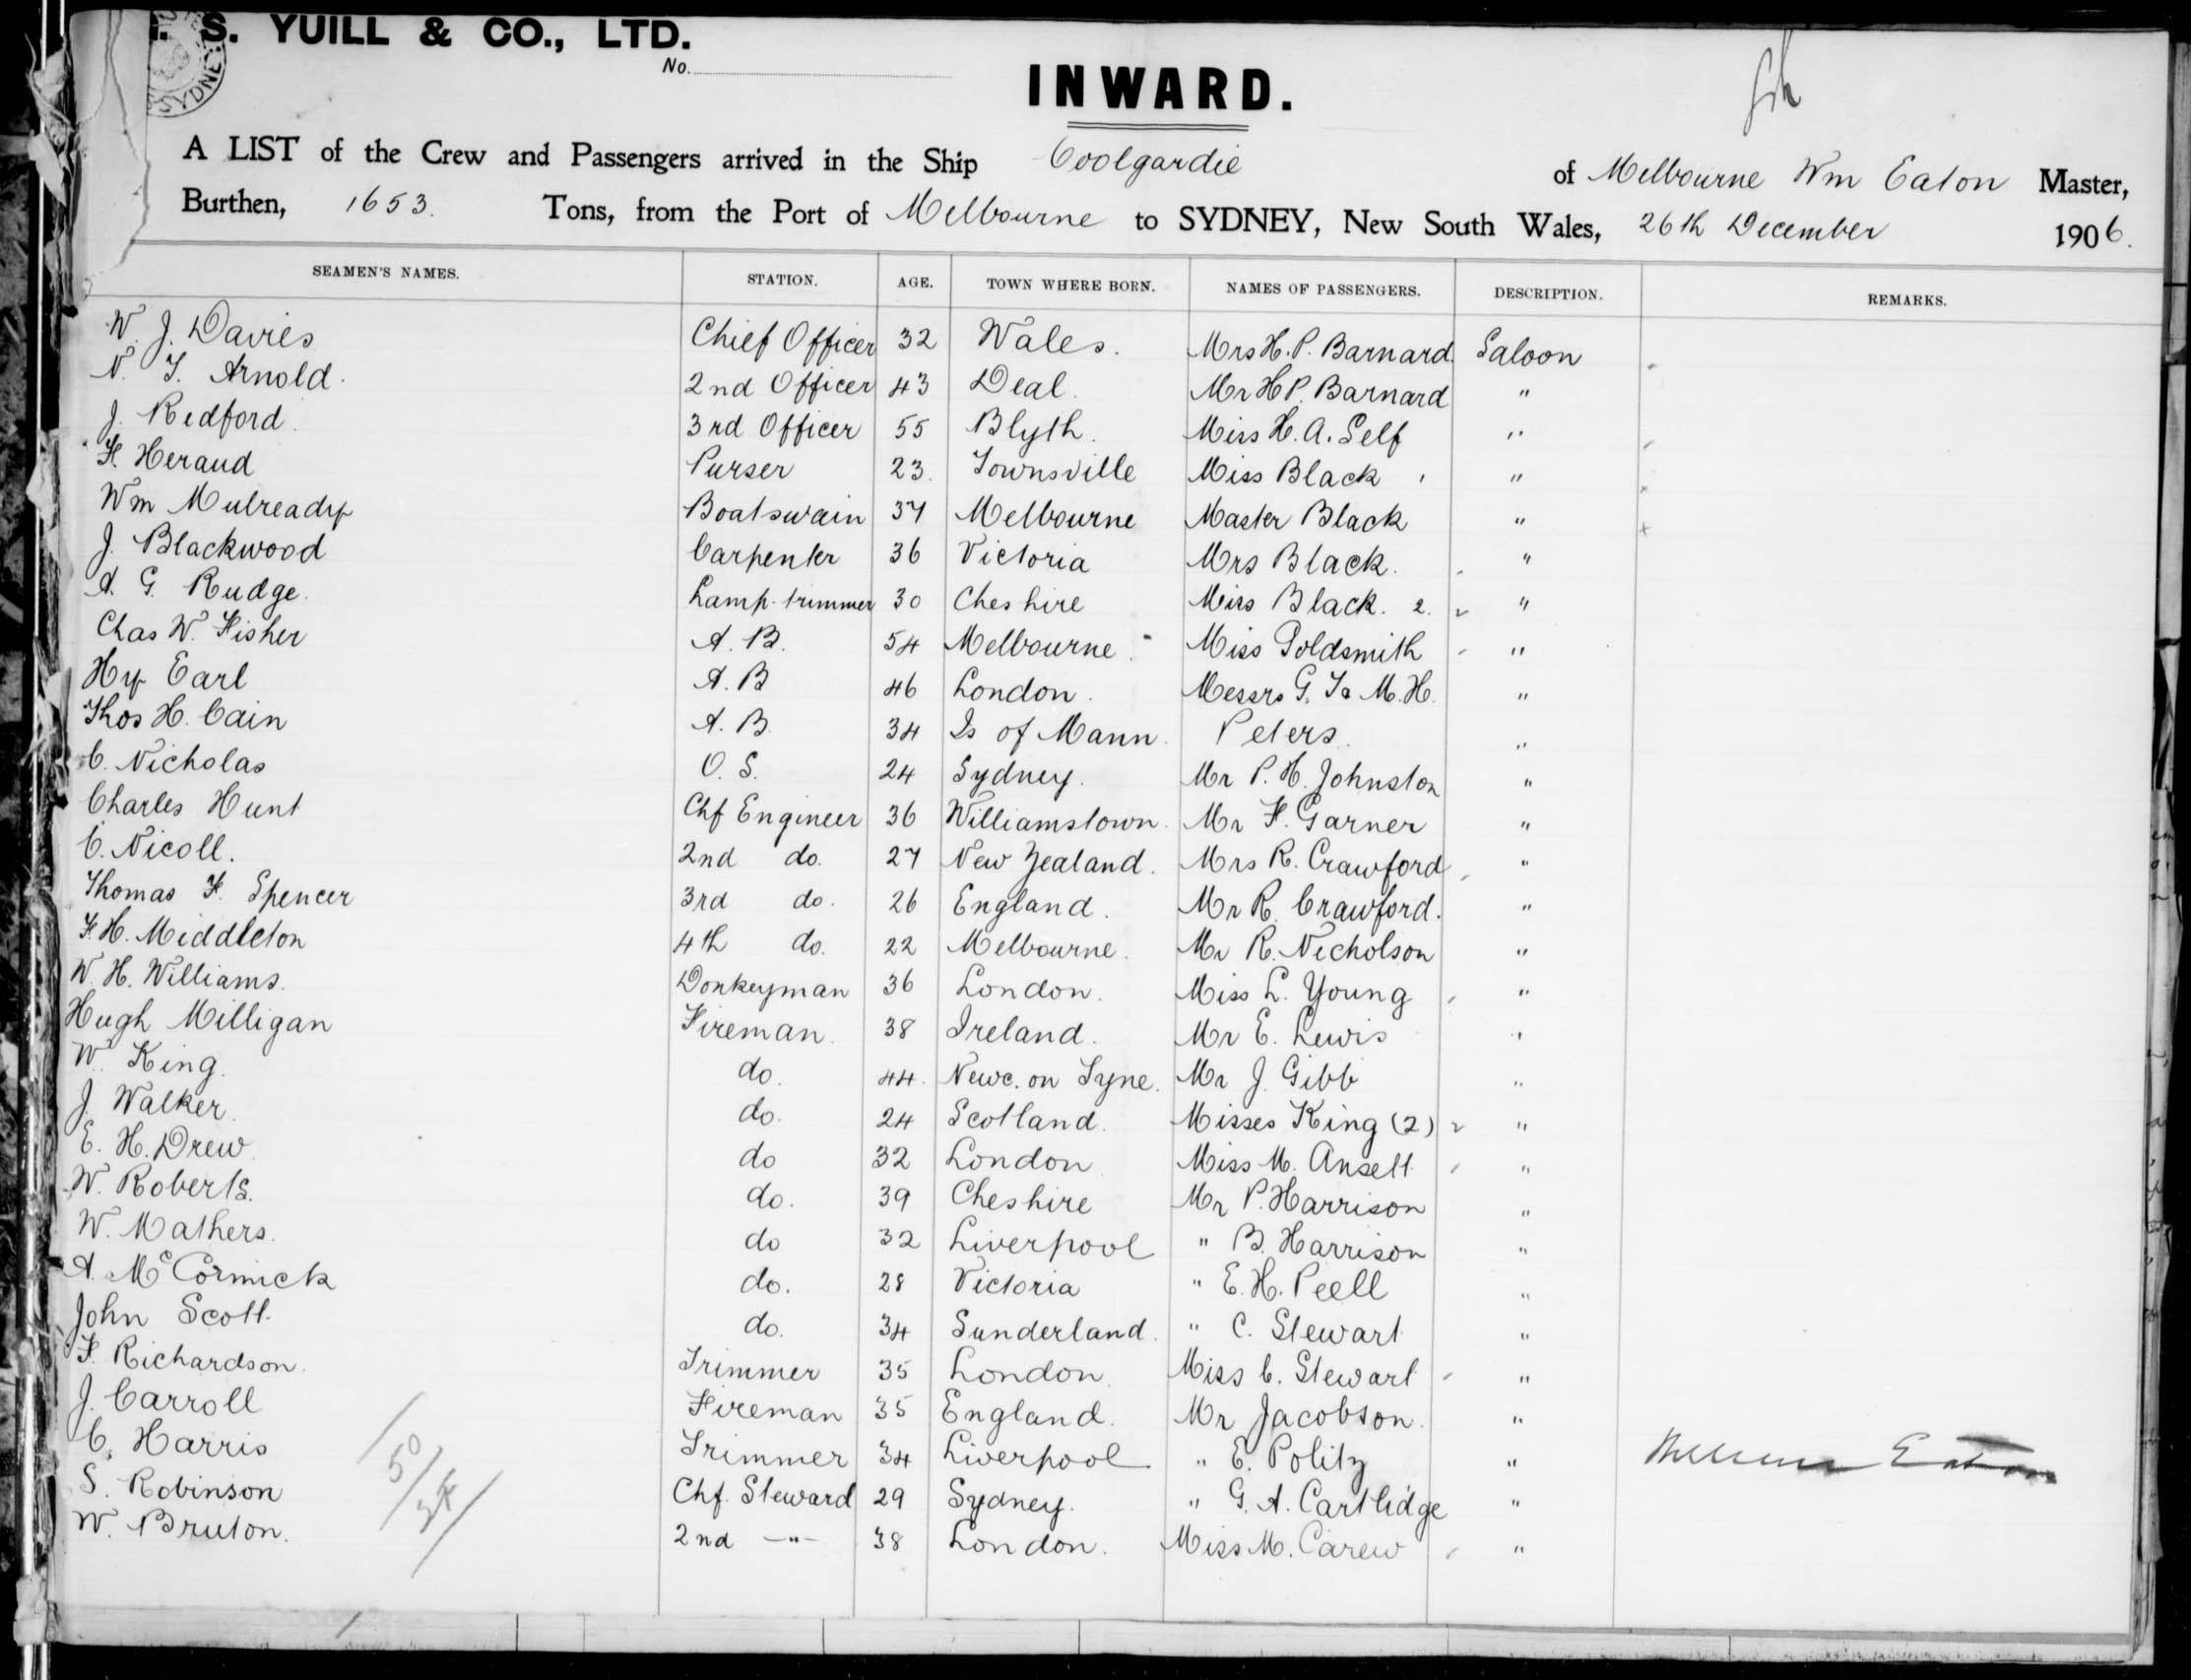 . S. YUILL & CO., LTD.
SYDNEY
No.
INWARD.
A LIST of the Crew and Passengers arrived in the Ship Coolgardie of Melbourne Wm Eaton Master,
Burthen, 1653. Tons, from the Port of Melbourne to SYDNEY, New South Wales, 26th December 1906.
SEAMEN'S NAMES. STATION. AGE. TOWN WHERE BORN. NAMES OF PASSENGERS. DESCRIPTION. REMARKS.
W. J. Davies Chief Officer 32 Wales. Mrs H. P. Barnard Saloon
N. T. Arnold. 2nd Officer 43 Deal. Mr H P. Barnard "
J. Redford. 3rd Officer 55 Blyth. Miss H. A. Self "
F. Heraud Purser 23. Townsville Miss Black "
Wm Mulready Boatswain 37 Melbourne Master Black "
J. Blackwood Carpenter 36 Victoria Mrs Black. "
A. G. Rudge. Lamp-trimmer 30 Cheshire Miss Black. 2. "
Chas W. Fisher A. B. 54 Melbourne. Miss Goldsmith "
Hy Earl A. B 46 London. Messrs G. T & M. H. "
Thos H. Cain A. B. 34 Is of Mann. Peters. "
C. Nicholas O. S. 24 Sydney. Mr P. H. Johnston "
Charles Hunt Chf Engineer 36 Williamstown. Mr F. Garner "
C. Nicoll. 2nd do. 27 New Zealand. Mrs R. Crawford "
Thomas F. Spencer 3rd do. 26 England. Mr R. Crawford. "
F. H. Middleton 4th do. 22 Melbourne. Mr R. Nicholson "
W. H. Williams. Donkeyman 36 London. Miss L. Young "
Hugh Milligan Fireman. 38 Ireland. Mr E. Lewis "
W. King. do. 44. Newc. on Tyne. Mr J. Gibb "
J. Walker. do. 24 Scotland. Misses King (2) "
E. H. Drew. do 32 London Miss M. Ansell "
W. Roberts. do. 39 Cheshire Mr P. Harrison "
W. Mathers. do 32 Liverpool " B. Harrison "
A. McCormick do. 28 Victoria " E. H. Peell "
John Scott. do. 34 Sunderland. " C. Stewart "
F. Richardson. Trimmer 35 London. Miss C. Stewart "
J. Carroll Fireman 35 England. Mr Jacobson. "
C. Harris Trimmer 34 Liverpool " E. Politz " William Eaton
S. Robinson Chf. Steward 29 Sydney. " G. A. Cartlidge "
W. Bruton. 2nd —"— 38 London. Miss M. Carew "
50